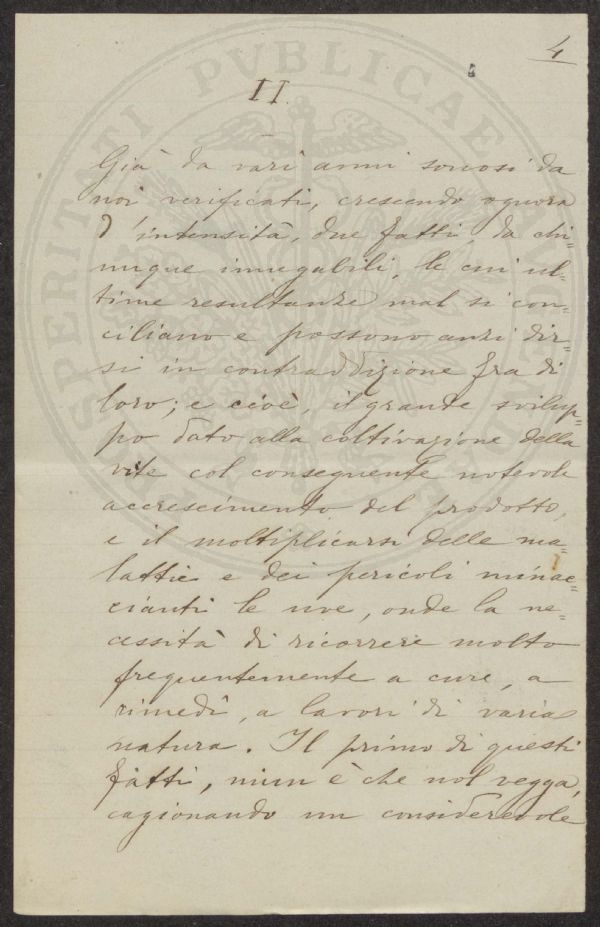 4
II.
Già da vari anni sonosi da
noi verificati, crescendo ognora
d'intensità, due fatti, da chi=
unque innegabili, le cui ul=
time resultanze mal si con=
ciliano e possono anzi dir=
si in contraddizione fra di
loro; e cioè, il grande svilup=
po dato alla coltivazione della
vite col conseguente notevole
accrescimento del prodotto,
e il moltiplicarsi delle ma=
lattie e dei pericoli minac=
cianti le uve, onde la ne=
cessità di ricorrere molto
frequentemente a cure, a
rimedî, a lavori di varia
natura. Il primo di questi
fatti, niun è che nol vegga,
cagionando un considerevole
PROSPERITATI PVBLICAE AVGENDAE